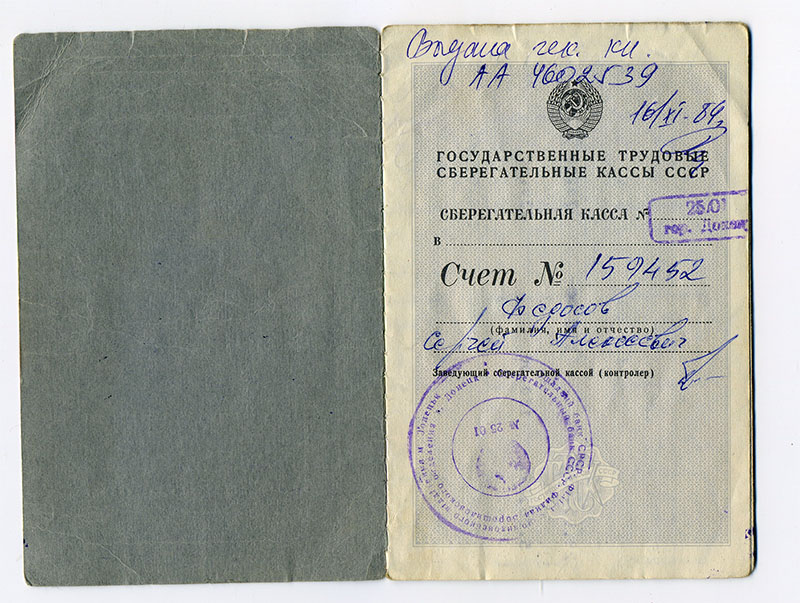 Выдана чек. кн.
АА 4602539
16/XI-89г
ГОСУДАРСТВЕННЫЕ ТРУДОВЫЕ
СБЕРЕГАТЕЛЬНЫЕ КАССЫ СССР
СБЕРЕГАТЕЛЬНАЯ КАССА №
25/01
гор. Донецк
В
Счет № 159452
Федосов
(фамилия, имя и отчество)
Сергей Алексеевич
Заведующий сберегательной кассой (контролер)
№ 25 01